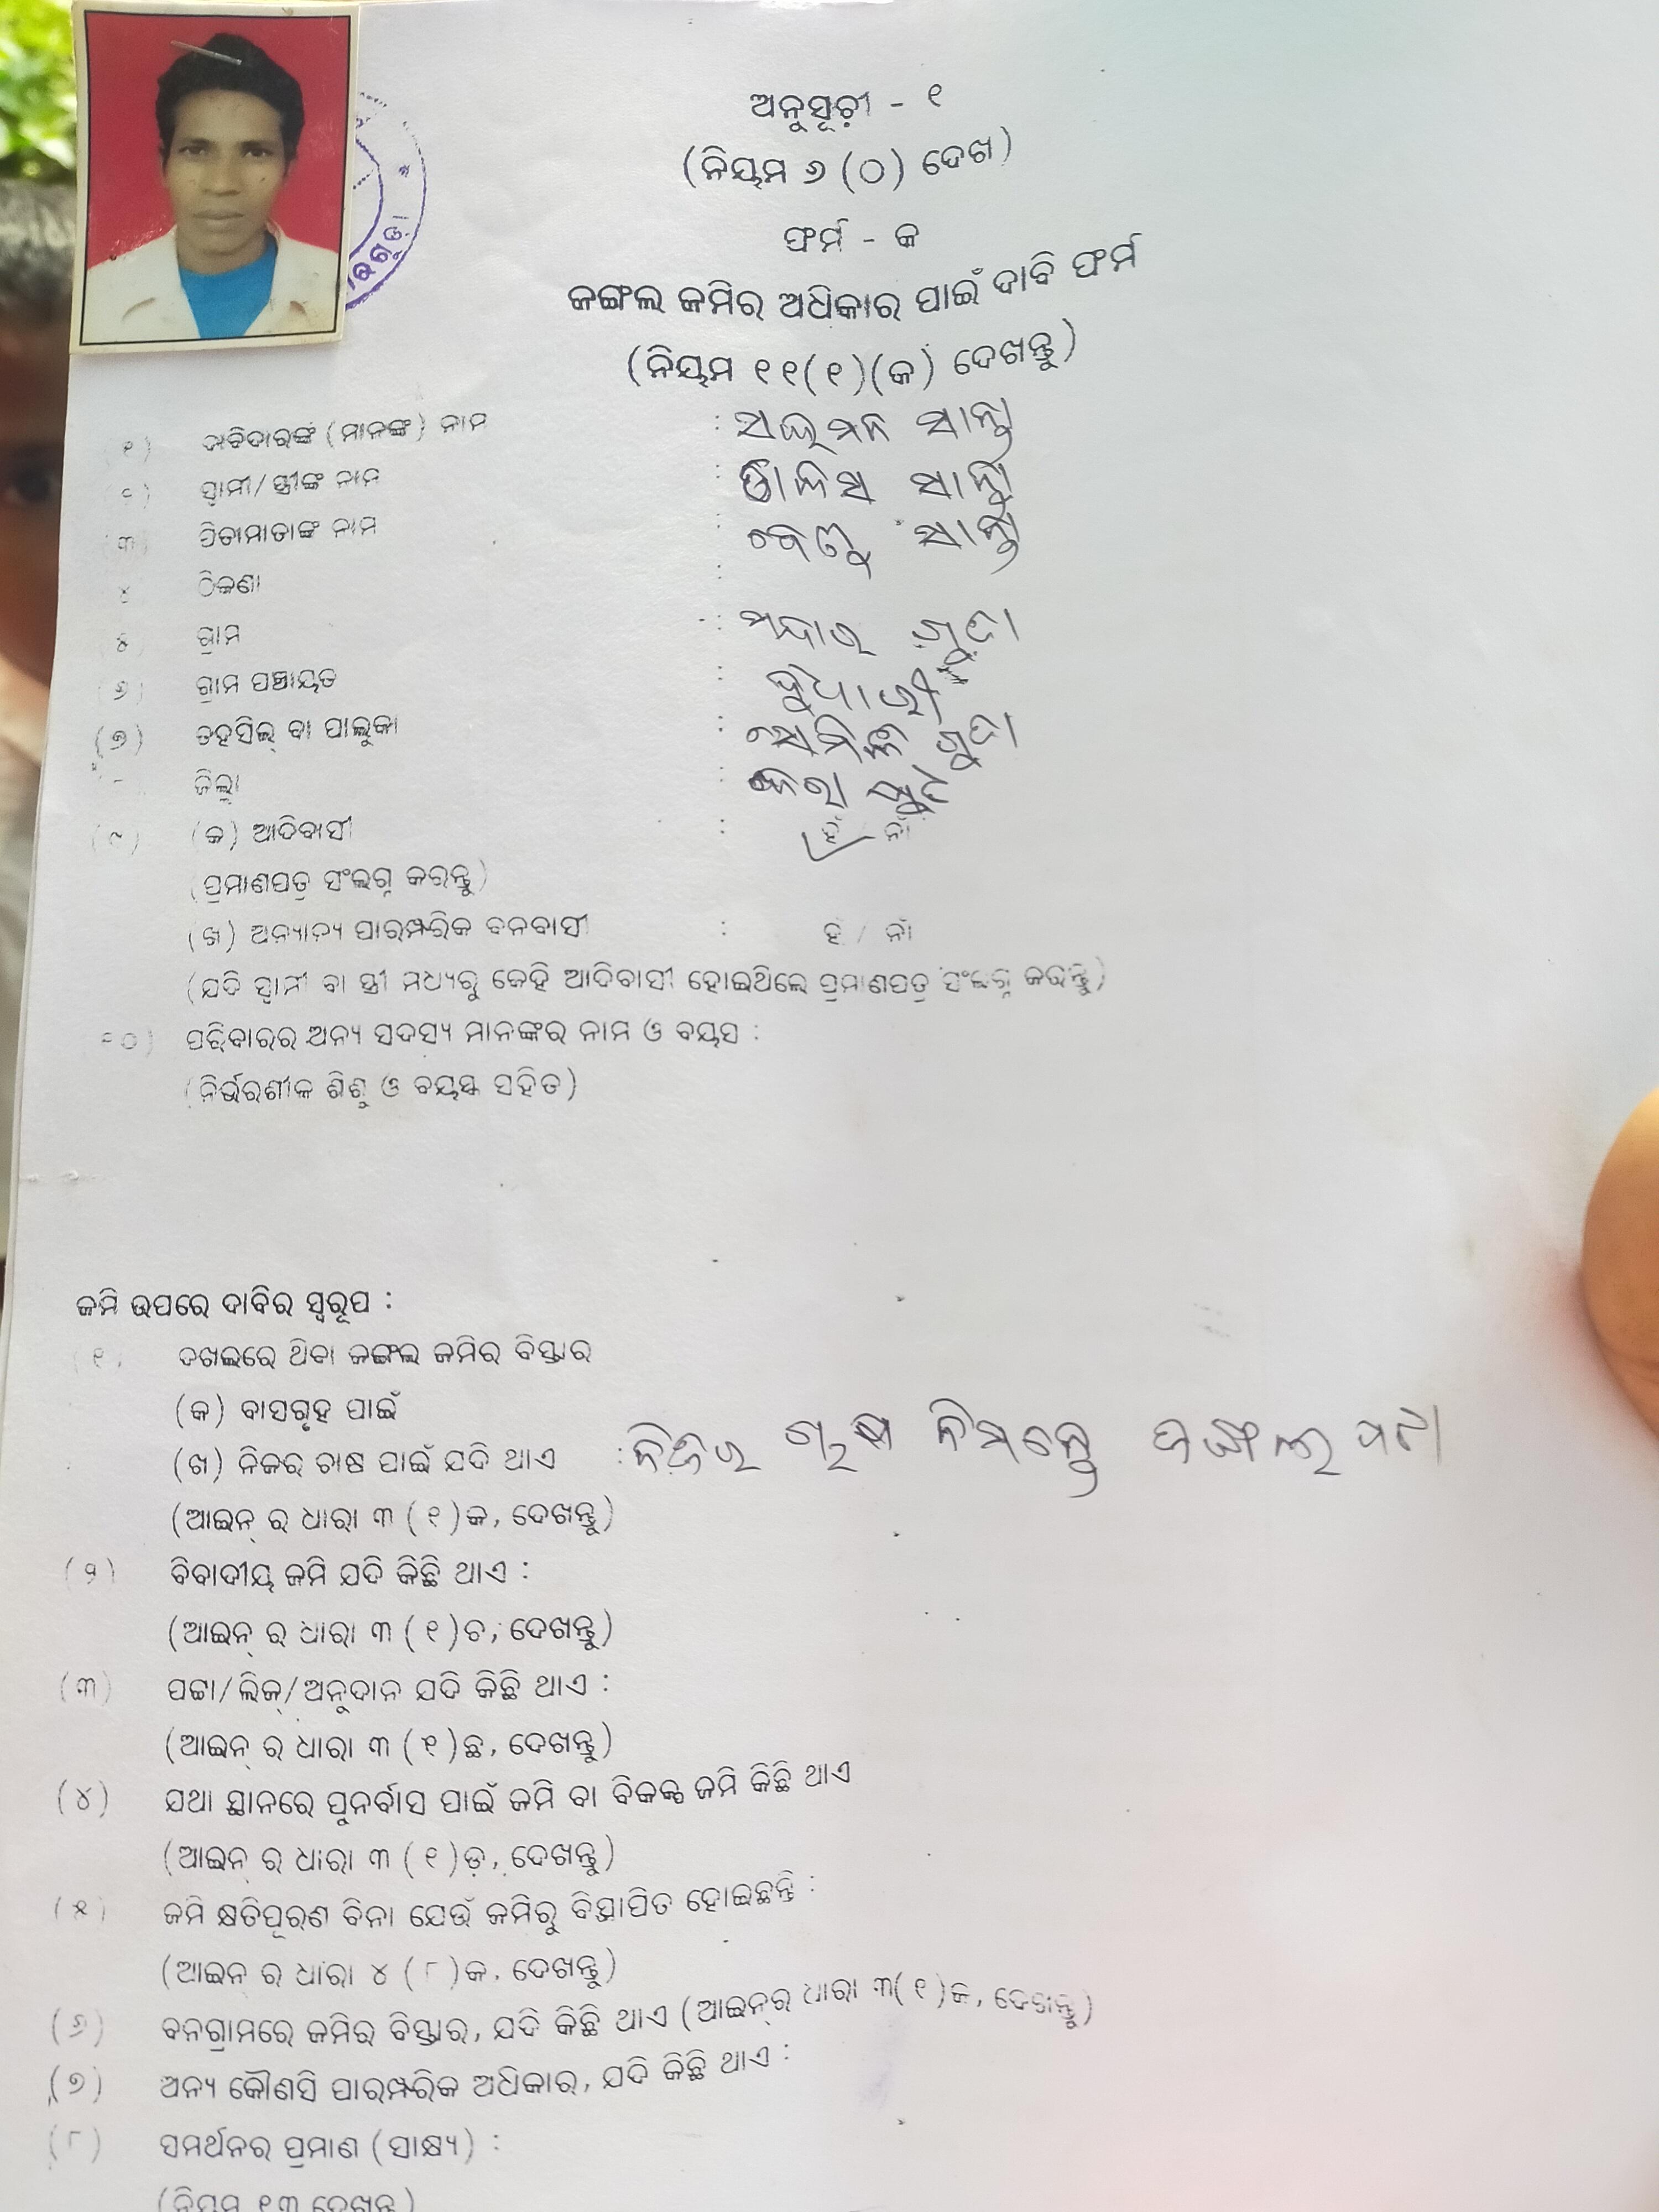 ଅନୁସୂଚୀ - ୧
(ନିୟମ ୬ (୦) ଦେଖ)
ଫର୍ମ - କ
ଜଙ୍ଗଲ ଜମିର ଅଧିକାର ପାଇଁ ଦାବି ଫର୍ମ
(ନିୟମ ୧୧(୧)(କ) ଦେଖନ୍ତୁ)
(୧) ଦାବିଦାରଙ୍କ (ମାନଙ୍କ) ନାମ : ସାଇମନ ସାନ୍ତା
(୨) ସ୍ୱାମୀ/ସ୍ତ୍ରୀଙ୍କ ନାମ : ସାନ୍ତା
(୩) ପିତାମାତାଙ୍କ ନାମ : ସାନ୍ତା
୪ ଠିକଣା :
୫ ଗ୍ରାମ :
(୬) ଗ୍ରାମ ପଞ୍ଚାୟତ : ଦୁଧାରୀ
(୭) ତହସିଲ୍ ବା ପାଲୁକା : ସେମିଳିଗୁଡା
ଜିଲ୍ଲା : କୋରାପୁଟ
(୯) (କ) ଆଦିବାସୀ : ହଁ / ନାଁ
(ପ୍ରମାଣପତ୍ର ସଂଲଗ୍ନ କରନ୍ତୁ)
(ଖ) ଅନ୍ୟାନ୍ୟ ପାରମ୍ପରିକ ବନବାସୀ : ହଁ / ନାଁ
(ଯଦି ସ୍ୱାମୀ ବା ସ୍ତ୍ରୀ ମଧ୍ୟରୁ କେହି ଆଦିବାସୀ ହୋଇଥିଲେ ପ୍ରମାଣପତ୍ର ସଂଲଗ୍ନ କରନ୍ତୁ)
୧୦) ପରିବାରର ଅନ୍ୟ ସଦସ୍ୟ ମାନଙ୍କର ନାମ ଓ ବୟସ :
(ନିର୍ଭରଶୀଳ ଶିଶୁ ଓ ବୟସ୍କ ସହିତ)
ଜମି ଉପରେ ଦାବିର ସ୍ୱରୂପ :
(୧) ଦଖଲରେ ଥିବା ଜଙ୍ଗଲ ଜମିର ବିସ୍ତାର
(କ) ବାସଗୃହ ପାଇଁ
(ଖ) ନିଜର ଚାଷ ପାଇଁ ଯଦି ଥାଏ : ନିଜର ଚାଷ ନିମନ୍ତେ
(ଆଇନ୍ ର ଧାରା ୩ (୧)କ, ଦେଖନ୍ତୁ)
(୨) ବିବାଦୀୟ ଜମି ଯଦି କିଛି ଥାଏ :
(ଆଇନ୍ ର ଧାରା ୩ (୧)ଚ, ଦେଖନ୍ତୁ)
(୩) ପଟ୍ଟା/ଲିଜ୍/ଅନୁଦାନ ଯଦି କିଛି ଥାଏ :
(ଆଇନ୍ ର ଧାରା ୩ (୧)ଛ, ଦେଖନ୍ତୁ)
(୪) ଯଥା ସ୍ଥାନରେ ପୁନର୍ବାସ ପାଇଁ ଜମି ବା ବିକଳ୍ପ ଜମି କିଛି ଥାଏ
(ଆଇନ୍ ର ଧାରା ୩ (୧)ଡ଼, ଦେଖନ୍ତୁ)
(୫) ଜମି କ୍ଷତିପୂରଣ ବିନା ଯେଉଁ ଜମିରୁ ବିସ୍ଥାପିତ ହୋଇଛନ୍ତି :
(ଆଇନ୍ ର ଧାରା ୪ (୮)କ, ଦେଖନ୍ତୁ)
(୬) ବନଗ୍ରାମରେ ଜମିର ବିସ୍ତାର, ଯଦି କିଛି ଥାଏ (ଆଇନ୍‌ର ଧାରା ୩(୧)ଜ, ଦେଖନ୍ତୁ)
(୭) ଅନ୍ୟ କୌଣସି ପାରମ୍ପରିକ ଅଧିକାର, ଯଦି କିଛି ଥାଏ :
(୮) ସମର୍ଥନର ପ୍ରମାଣ (ସାକ୍ଷ୍ୟ) :
(ନିୟମ ୧୩ ଦେଖନ୍ତୁ)